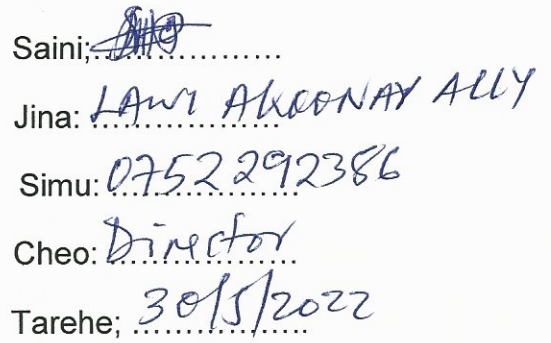 Saini;..................
Jina: LAWI AKOONAY ALLY
Simu: 0752292386
Cheo: Director
Tarehe; 30/5/2022